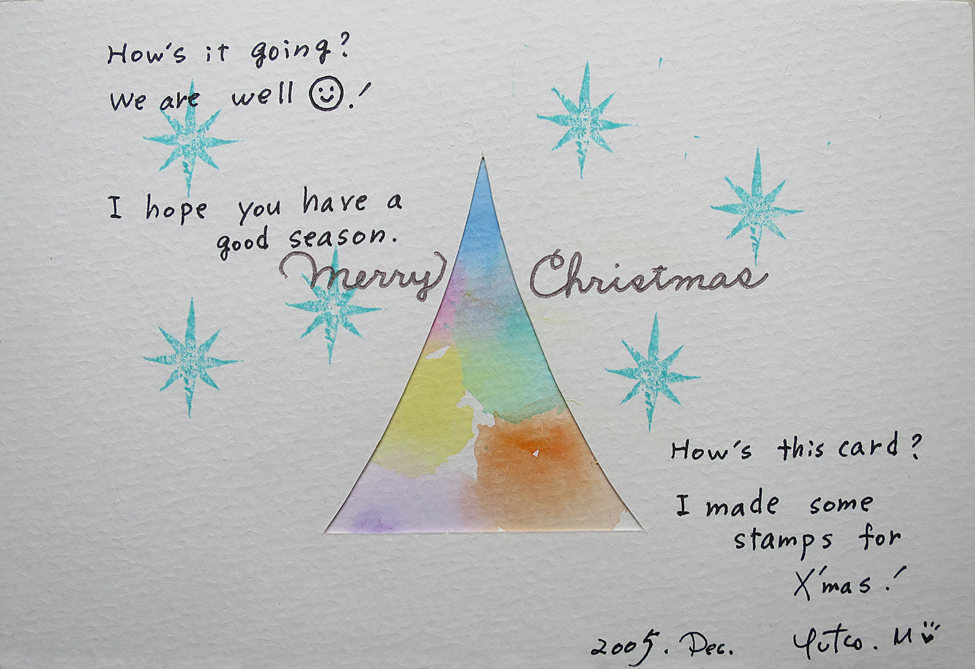 How's it going?
We are well ☺.!
I hope you have a
good season.
Merry Christmas
How's this card?
I made some
stamps for
X'mas!
2005. Dec. Yutco. M